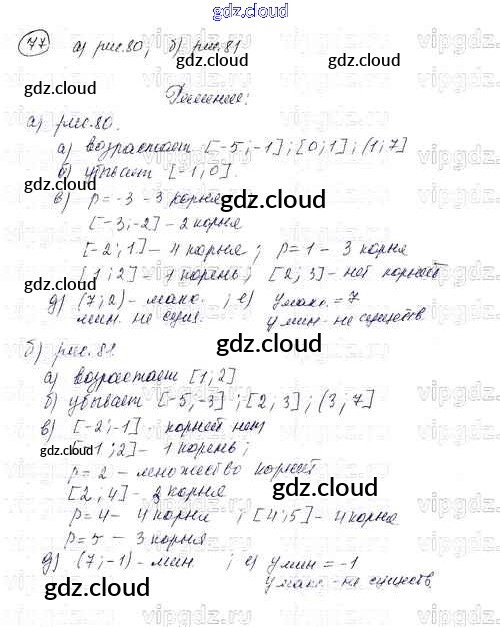 gdz.cloud
77 а) рис.80, б) рис.81
gdz.cloud gdz.cloud
Решение:
а) рис.80.
а) возрастает [-5;-1]; [0;1]; (1;7]
gdz.cloud
б) убывает [-1;0].
в) p = -3 - 3 корня;
gdz.cloud
[-3;-2] - 2 корня
[-2;1] - 4 корня; p = 1 - 3 корня
gdz.cloud
[1;2] - 1 корень; [2;3] - нет корней
gdz.cloud
д) (7;2) - макс. ; е) y макс. = 7
мин. не сущ. y мин - не существ.
gdz.cloud
б) рис.81.
gdz.cloud
а) возрастает [1;2]
б) убывает [-5;-3]; [2;3]; (3;7]
gdz.cloud
в) [-2;-1] - корней нет
[-1;2] - 1 корень;
gdz.cloud
p = 2 - множество корней
[2;4] - 2 корня
gdz.cloud
p = 4 - 4 корня ; [4;5] - 4 корня
gdz.cloud
p = 5 - 3 корня
д) (7;-1) - мин ; е) y мин = -1
gdz.cloud
y макс - не существ.
gdz.cloud